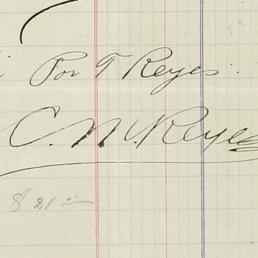 Por T Reyes
C. M. Reyes
$ 21